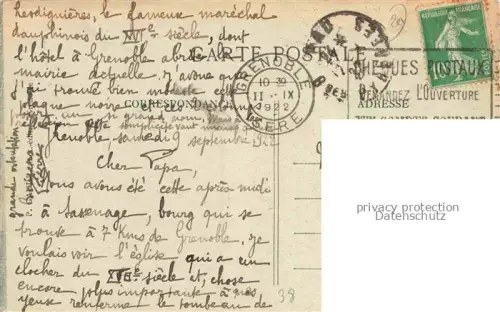 Lesdiguières, le fameux maréchal
dauphinois du XVIe siècle, dont
l'hôtel à Grenoble abrite la
mairie actuelle. J'avoue que
j'ai trouvé bien modeste cette
plaque noire
si grand nom. Mais
simplicité vaut
Grenoble, samedi 9 septembre 1922
Cher Papa,
Nous avons été cette après-midi
à Sassenage, bourg qui se
trouve à 7 Kms de Grenoble. Je
voulais voir l'église qui a un
clocher du siècle et, chose
encore plus importante à mes
yeux renferme le tombeau de
grande ostentation
CARTE POSTALE
CORRESPONDANCE
ADRESSE
GRENOBLE
10-30
11-IX
1922
ISERE
CHEQUES POSTAUX
DEMANDEZ L'OUVERTURE
38
privacy protection
Datenschutz